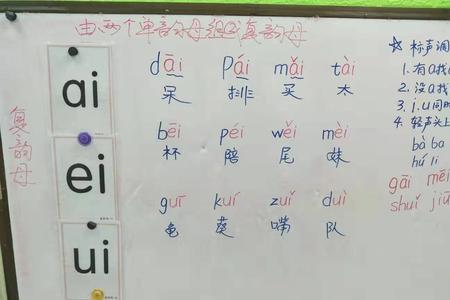 由两个单音字母组的复韵母
复韵母
ai
ei
ui
dāi pái mǎi tài
呆 排 买 太
bēi péi wěi mèi
杯 陪 尾 妹
guī kuí zuǐ duì
龟 葵 嘴 队
☆ 标声调
1. 有a找
2. 没a找
3. i.u同
4. 轻声头上
bà ba
hú li
gāi
shuǐ